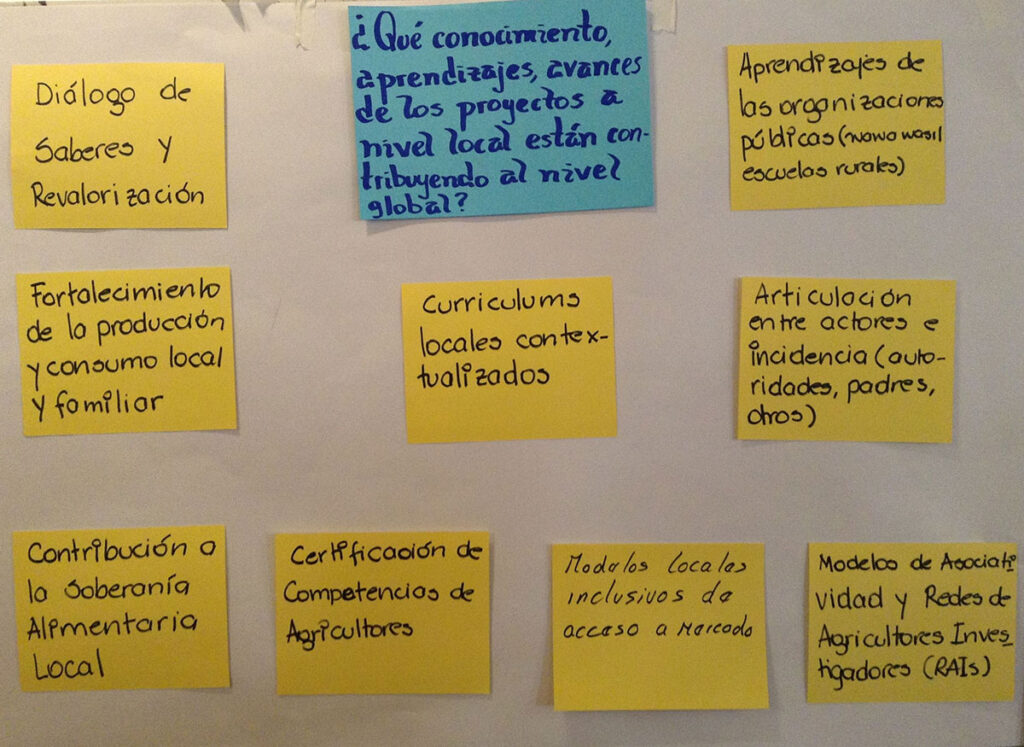 ¿Qué conocimiento,
aprendizajes, avances
de los proyectos a
nivel local están con-
tribuyendo al nivel
global?
Diálogo de
Saberes y
Revalorización
Aprendizajes de
las organizaciones
públicas (wawa wasi
escuelas rurales)
Fortalecimiento
de la producción
y consumo local
y familiar
Curriculums
locales contex-
tualizados
Articulación
entre actores e
incidencia (auto-
ridades, padres,
otros)
Contribución a
la Soberanía
Alimentaria
Local
Certificación de
Competencias de
Agricultores
Modelos locales
inclusivos de
acceso a Mercado
Modelos de Asociati
vidad y Redes de
Agricultores Inves-
tigadores (RAIs)